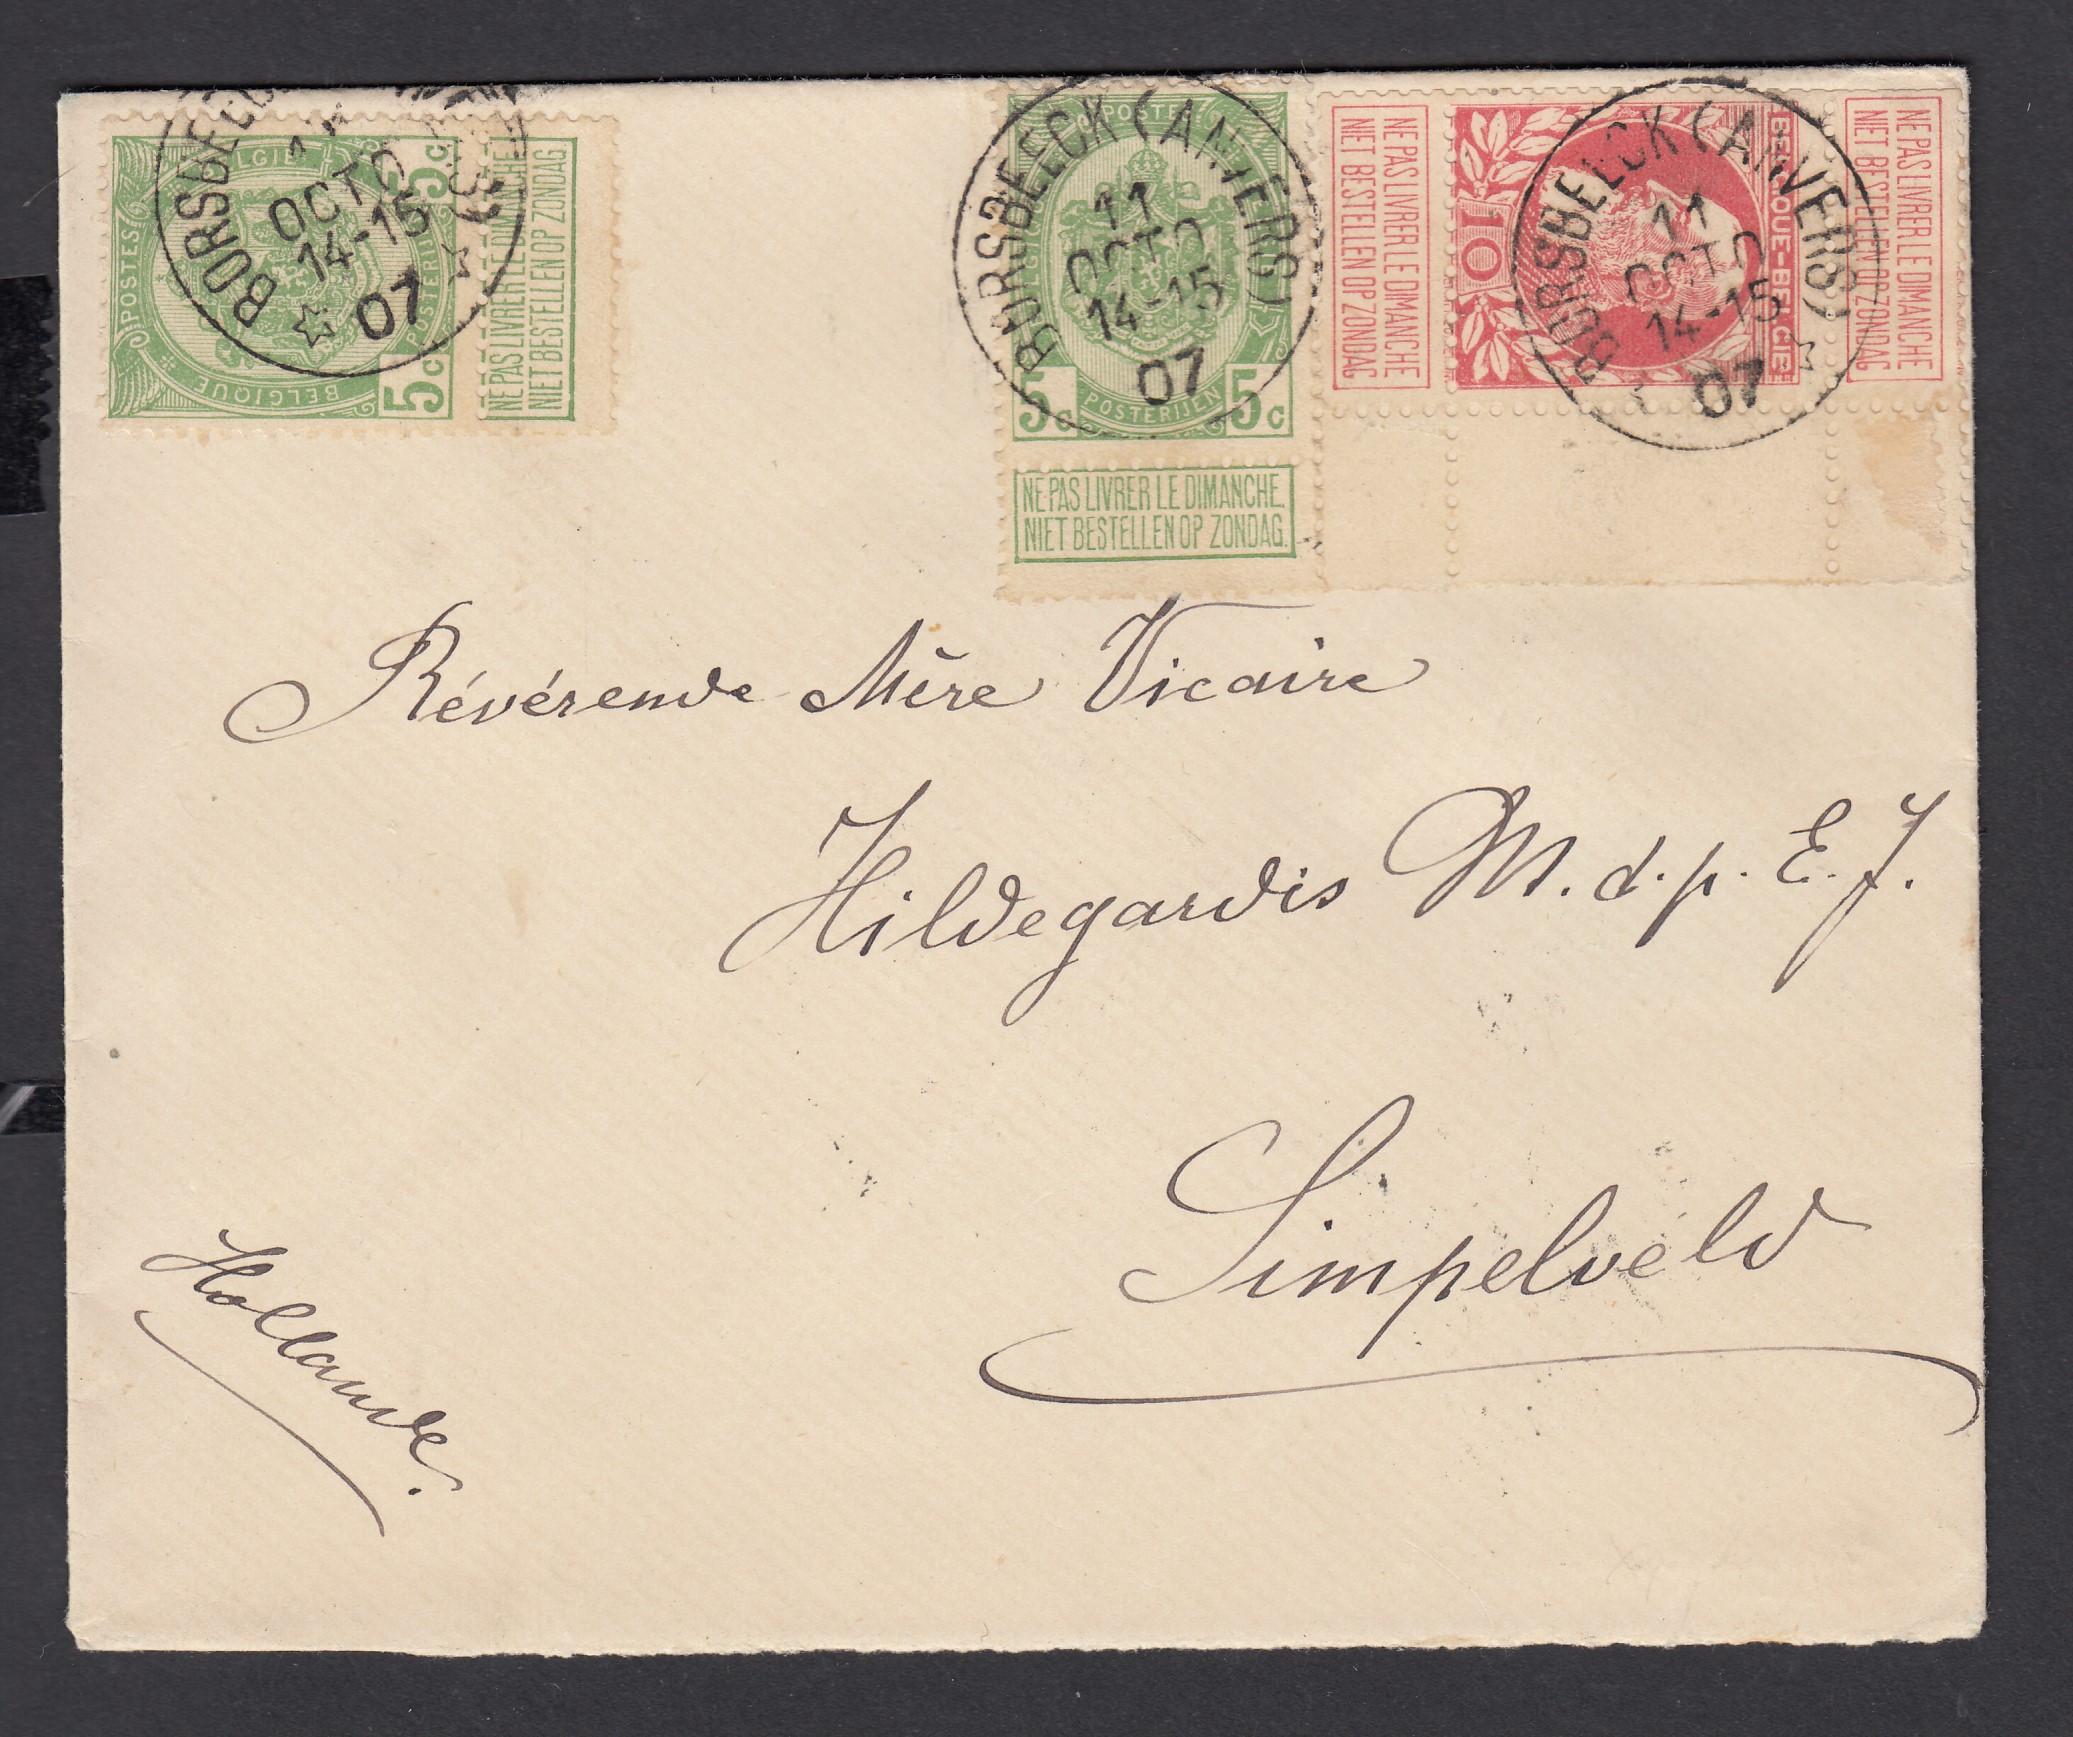 POSTES
BELGIQUE
BELGIE
POSTERIJEN
5c
5c
NE PAS LIVRER LE DIMANCHE
NIET BESTELLEN OP ZONDAG
BORSBEEC
OCTO
14-15
07
POSTERIJEN
5c 5c
NE PAS LIVRER LE DIMANCHE.
NIET BESTELLEN OP ZONDAG.
BORSBEECK (ANVERS)
11
OCTO
14-15
07
NE PAS LIVRER LE DIMANCHE
NIET BESTELLEN OP ZONDAG
10
BELGIQUE-BELGIE
BORSBEECK (ANVERS)
11
OCTO
14-15
07
NE PAS LIVRER LE DIMANCHE
NIET BESTELLEN OP ZONDAG
Révérende Mère Vicaire
Hildegardis M. d. p. E. J.
Simpelveld
Hollande.